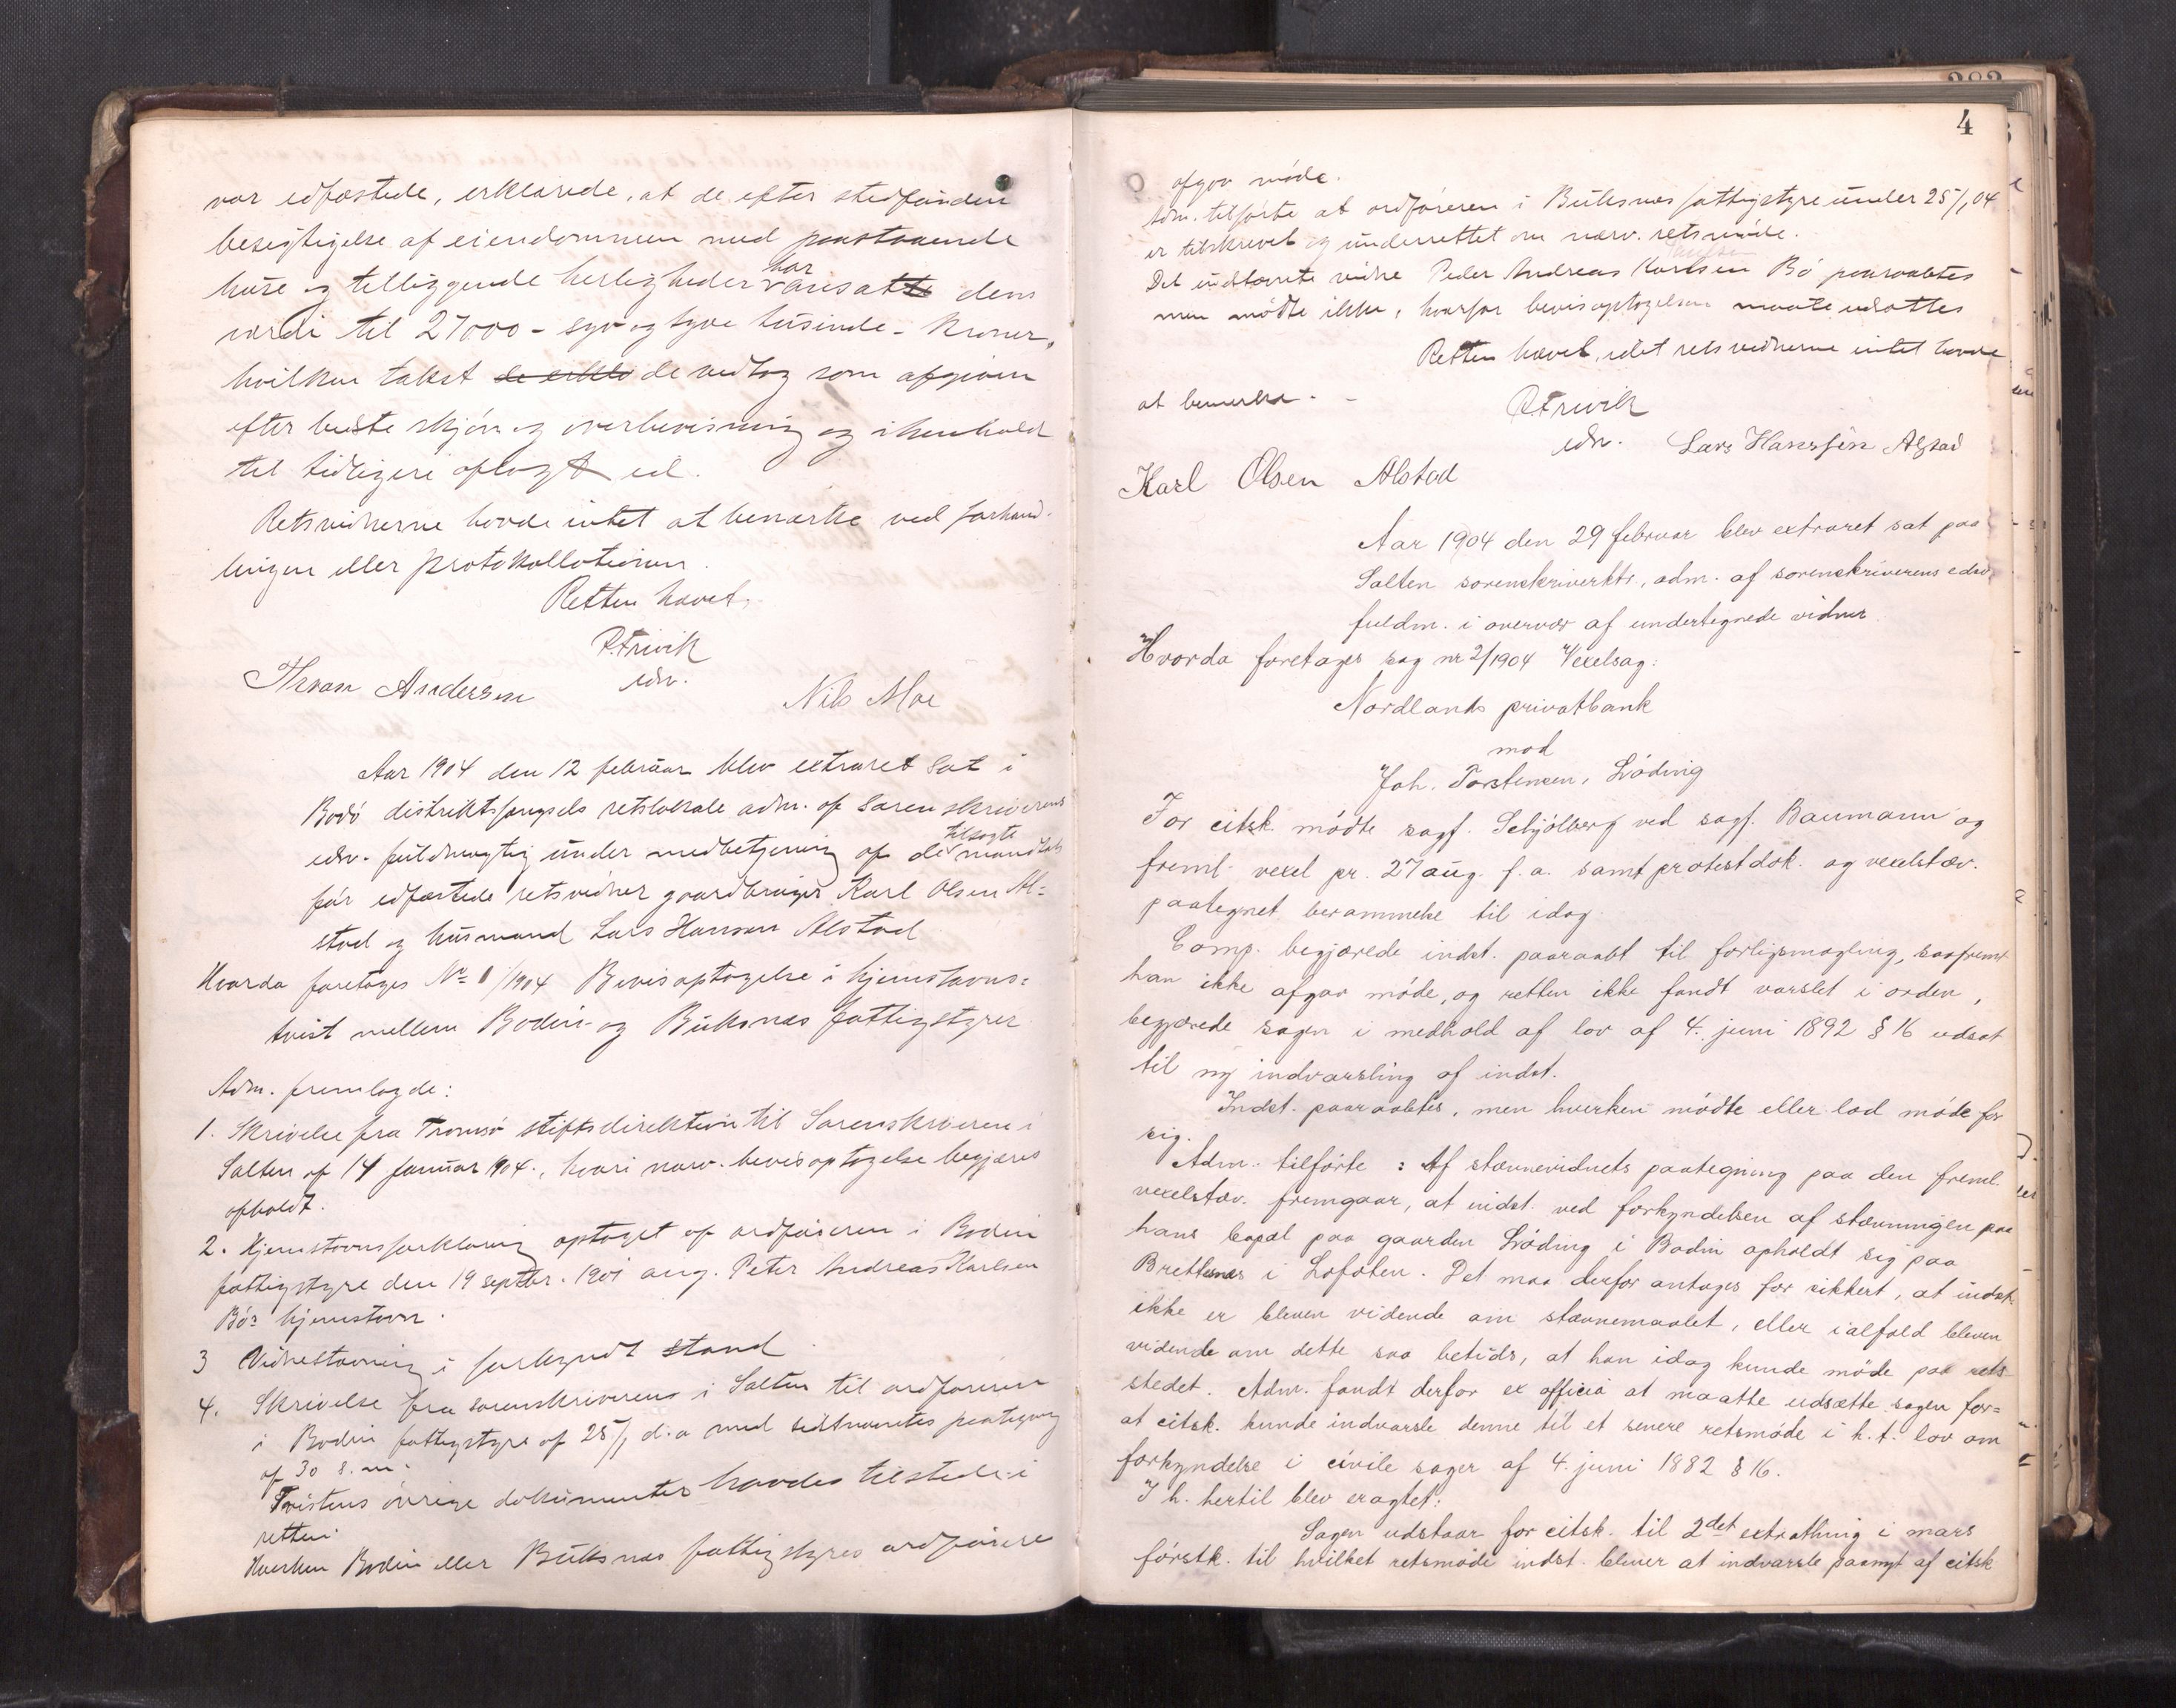 var edfæstede, erklærede, at de efter stedfunden
besigtigelse af eiendommen med paastaaende
huse og tilliggende herligheder har
værdi til 27000 - syv og tyve tusinde - kroner,
hvilken takst de vedtog som afgiven
efter bedste skjøn og overbevisning og i henhold
til tidligere aflagt ed.
Retsvidnerne havde intet at bemærke ved forhand-
lingen eller protokollationen.
Retten hævet.
P. Trivik
edv.
Thevan Andersen
Nils Moe
Aar 1904 den 12 februar blev extraret sat i
Bodø distriktsfængsels retslokale adm. af Sorenskriverens
edsv. fuldmægtig under medbetjening af de tilsagte mandtals
før edfæstede retsvidner gaardbruger Karl Olsen Al=
stad og husmand Lars Hansen Alstad
Hvorda foretages No 1/1904 Bevisoptagelse i hjemstavns=
tvist mellem Bodin- og Buksnæs fattigstyrer
Adm. fremlagde:
1. Skrivelse fra Tromsø stiftsdirektion til Sorenskriveren i
Salten af 14 januar 1904., hvori nærv. bevisoptagelse begjæres
afholdt.
2. Hjemstavnsforklaring optaget af ordføreren i Bodin
fattigstyre den 19 septbr. 1901 ang. Peter Andreas Karlsen
Bøs hjemstavn.
3 Vidnestævning i forkyndt stand.
4. Skrivelse fra sorenskriveren i Salten til ordføreren
i Bodin fattigstyre af 25/1 d.a med sidstnævntes paategning
af 30 s.m.
Tvistens øvrige dokumenter havdes tilstede i
retten.
Hverken Bodin eller Buksnæs fattigstyres ordførere
4
afgav møde.
Adm. tilførte at ordføreren i Buksnæs fattigstyre under 25/1 04
er tilskrevet og underrettet om nærv. retsmøde.
Det indstævnte vidne Peder Andreas Karlsen Bø paaraabtes
men mødte ikke, hvorfor bevisoptagelsen maate udsættes
Retten hævet, idet retsvidnerne intet havde
at bemerke. -
P. Trivik
edv.
Lars Hanssen Alstad
Karl Olsen Alstad
Aar 1904 den 29 februar blev extraret sat paa
Salten sorenskriverktr, adm. af sorenskriverens edsv.
fuldm. i overvær af undertegnede vidner.
Hvorda foretages sag nr 2/1904 Vexelsag:
Nordlands privatbank
mod
Joh. Torstensen, Løding
For citsk. mødte sagf. Schjølberg ved sagf. Baumann og
freml. vexel pr. 27 aug. f.a. samt protestdok. og vexelstæv.
paategnet berammelse til idag.
Comp. begjærede indst. paaraabt til forligsmægling, saafremt
han ikke afgav møde, og retten ikke fandt varslet i orden,
begjærede sagen i medhold af lov af 4. juni 1892 § 16 udsat
til ny indvarsling af indst.
Indst. paaraabtes, men hverken mødte eller lod møde for
sig.
Adm. tilførte: Af stævnevidnets paategning paa den freml.
vexelstæv. fremgaar, at indst. ved forkyndelsen af stævningen paa
hans bopæl paa gaarden Løding i Bodin opholdt sig paa
Brettesnæs i Lofoten. Det maa derfor antages for sikkert, at indst.
ikke er bleven vidende om stævnemaalet, eller ialfald bleven
vidende om dette saa betids, at han idag kunde møde paa rets-
stedet. Adm. fandt derfor ex officio at maatte udsætte sagen for=
at citsk. kunde indvarsle denne til et senere retsmøde i h.t. lov om
forkyndelse i civile sager af 4. juni 1882 § 16.
I h. hertil blev eragtet:
Sagen udstaar for citsk. til 2det extrathing i mars
førstk. til hvilket retsmøde indst. bliver at indvarsle paanyt af citsk